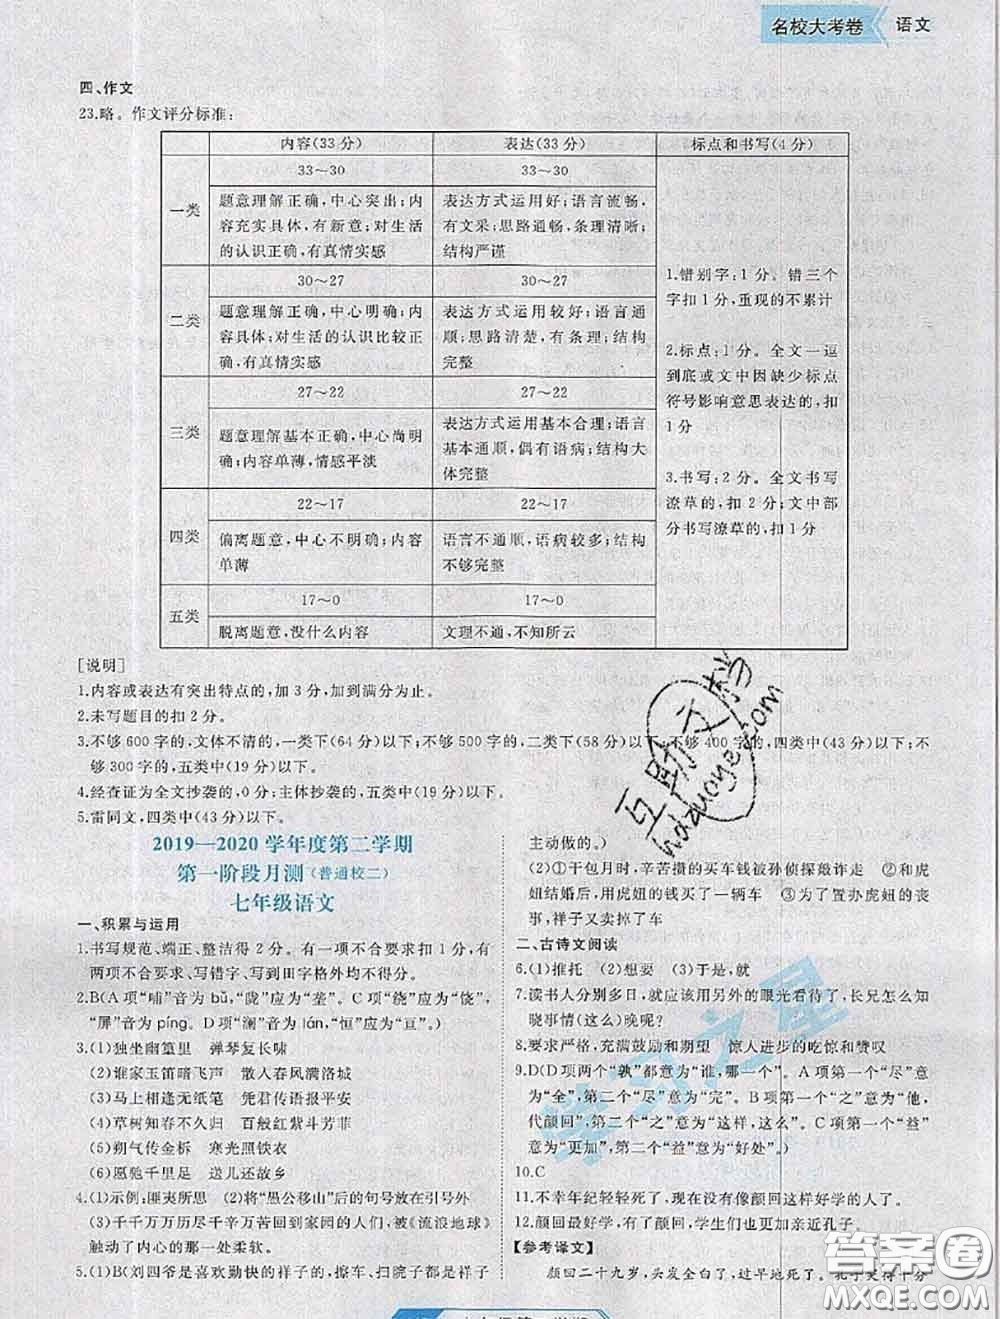 名校大考卷 语文
四、作文
23.略。作文评分标准：
内容(33分) 表达(33分) 标点和书写(4分)
一类
33～30 33～30
题意理解正确,中心突出;内容充实具体,有新意;对生活的认识正确,有真情实感
表达方式运用好;语言流畅,有文采;思路通畅,条理清晰;结构严谨
二类
30～27 30～27
题意理解正确,中心明确;内容具体;对生活的认识比较正确,有真情实感
表达方式运用较好;语言通顺;思路清楚,有条理;结构完整
三类
27～22 27～22
题意理解基本正确,中心尚明确;内容单薄,情感平淡
表达方式运用基本合理;语言基本通顺,偶有语病;结构大体完整
四类
22～17 22～17
偏离题意,中心不明确;内容单薄
语言不通顺,语病较多;结构不够完整
五类
17～0 17～0
脱离题意,没什么内容
文理不通,不知所云
1.错别字:1分。错三个字扣1分,重现的不累计
2.标点:1分。全文一逗到底或文中因缺少标点符号影响意思表达的,扣1分
3.书写:2分。全文书写潦草的,扣2分;文中部分书写潦草,扣1分
[说明]
1.内容或表达有突出特点的,加3分,加到满分为止。
2.未写题目的扣2分。
3.不够600字的,文体不清的,一类下(64分)以下;不够500字的,二类下(58分)以下;不够400字的,四类中(43分)以下;不
够300字的,五类中(19分)以下。
4.经查证为全文抄袭的,0分;主体抄袭的,五类中(19分)以下。
5.雷同文,四类中(43分)以下。
2019—2020学年度第二学期
第一阶段月测(普通校二)
七年级语文
一、积累与运用
1.书写规范、端正、整洁得2分。有一项不合要求扣1分,有
两项不合要求、写错字、写到田字格外均不得分。
2.B(A项“哺”音为bǔ,“陇”应为“垄”。C项“绕”应为“饶”,
“屏”音为píng。D项“澜”音为lán,“恒”应为“亘”。)
3.(1)独坐幽篁里 弹琴复长啸
(2)谁家玉笛暗飞声 散入春风满洛城
(3)马上相逢无纸笔 凭君传语报平安
(4)草树知春不久归 百般红紫斗芳菲
(5)朔气传金柝 寒光照铁衣
(6)愿驰千里足 送儿还故乡
4.(1)示例:匪夷所思 (2)将“愚公移山”后的句号放在引号外
(3)千千万万历尽千辛万苦回到家园的人们,被《流浪地球》
触动了内心的那一处柔软。
5.(1)B(刘四爷是喜欢勤快的样子的,擦车、扫院子都是祥子
主动做的。)
(2)①干包月时,辛苦攒的买车钱被孙侦探敲诈走 ②和虎
妞结婚后,用虎妞的钱买了一辆车 ③为了置办虎妞的丧
事,祥子又卖掉了车
二、古诗文阅读
6.(1)推托 (2)想要 (3)于是,就
7.读书人分别多日,就应该用另外的眼光看待了,长兄怎么知
晓事情(这么)晚呢?
8.要求严格,充满鼓励和期望 惊人进步的吃惊和赞叹
9.D(D项两个“孰”都意为“谁,哪一个”。A项第一个“尽”意
为“全”,第二个“尽”意为“完”。B项第一个“之”意为“他,
代颜回”,第二个“之”意为“的”。C项第一个“益”
意为“更加”,第二个“益”意为“好处”。)
10.C
11.不幸年纪轻轻死了,现在没有像颜回这样好学的人了。
12.颜回最好学;有了颜回,学生们也更加亲近孔子。
【参考译文】
颜回二十九岁,头发全白了,过早地死了。孔子哭得十分
互助文档
hdzuoye.com
学习之星
答案圈
MXQE.COM